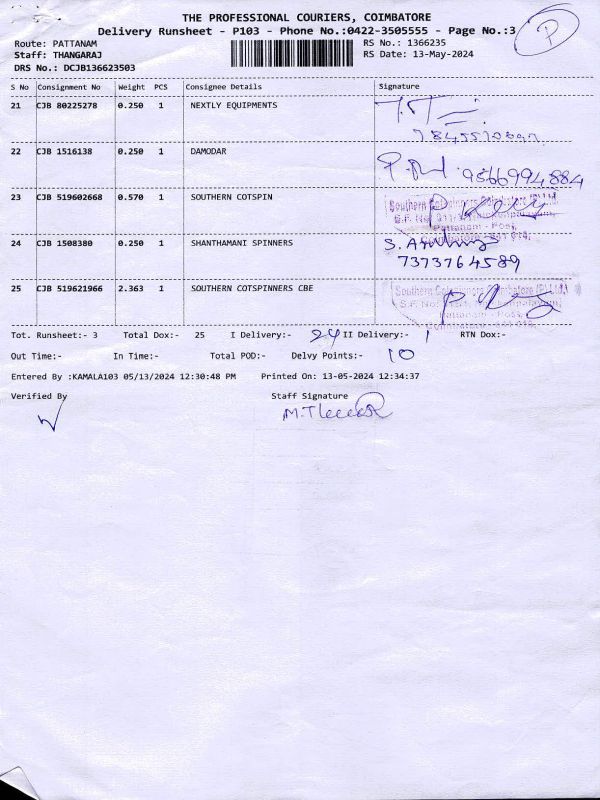 THE PROFESSIONAL COURIERS, COIMBATORE
Delivery Runsheet - P103 - Phone No.:0422-3505555 - Page No.:3
P
Route: PATTANAM RS No.: 1366235
Staff: THANGARAJ RS Date: 13-May-2024
DRS No.: DCJB136623503
S No Consignment No Weight PCS Consignee Details Signature
21 CJB 80225278 0.250 1 NEXTLY EQUIPMENTS
22 CJB 1516138 0.250 1 DAMODAR
9566994884
23 CJB 519602668 0.570 1 SOUTHERN COTSPIN
24 CJB 1508380 0.250 1 SHANTHAMANI SPINNERS
7373764589
25 CJB 519621966 2.363 1 SOUTHERN COTSPINNERS CBE
Tot. Runsheet:- 3 Total Dox:- 25 I Delivery:- 24 II Delivery:- 1 RTN Dox:-
Out Time:- In Time:- Total POD:- Delvy Points:- 10
Entered By :KAMALA103 05/13/2024 12:30:48 PM Printed On: 13-05-2024 12:34:37
Verified By Staff Signature